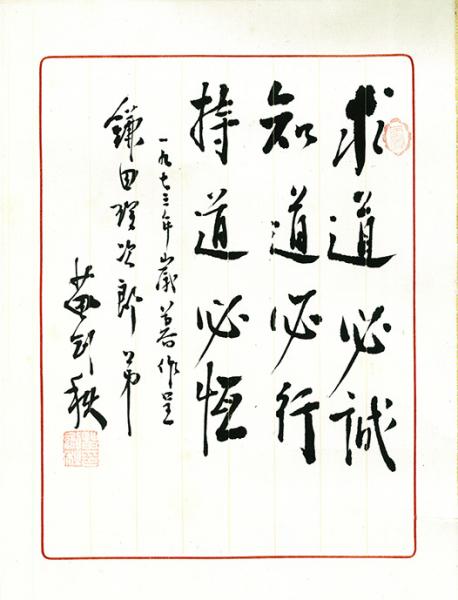 求道必誠
知道必行
持道必恆
一九七三年歲暮作呈
鎌田理次郎弟
苗剑秋